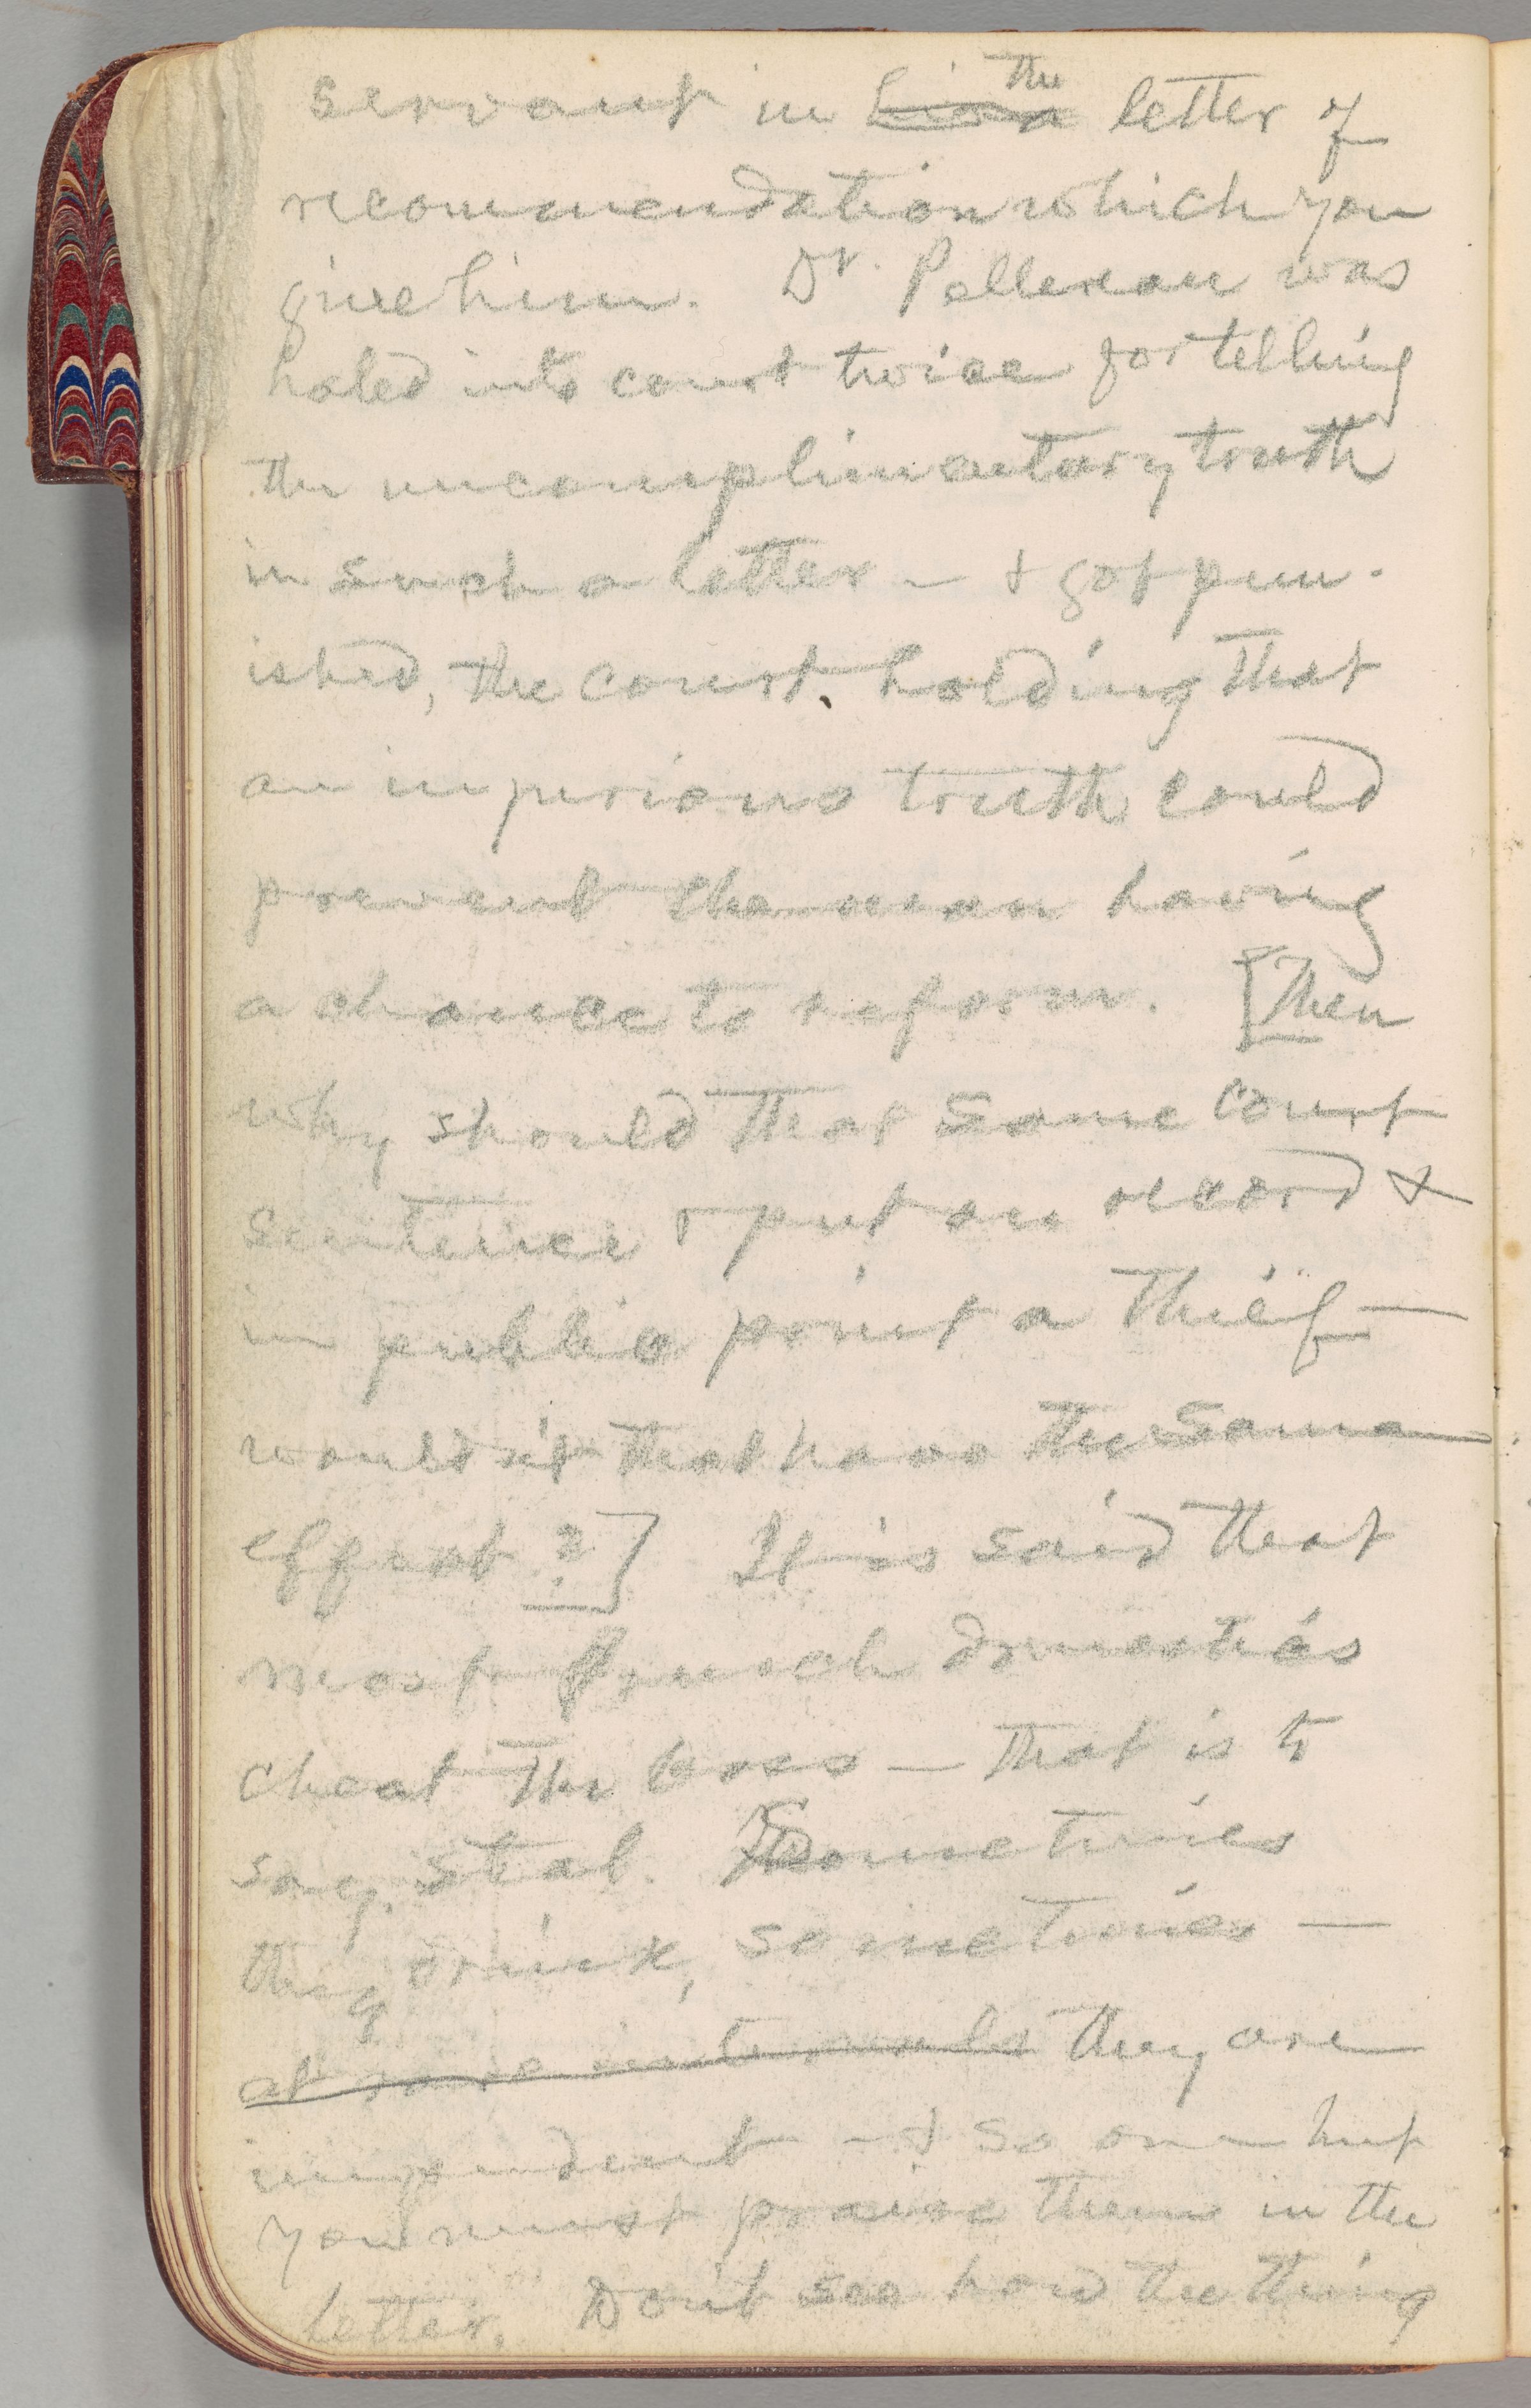 servant in the letter of
recommendation which you
give him. Dr. Pellereau was
haled into court twice for telling
the uncomplimentary truth
in such a letter — & got pun-
ished, the court, holding that
an injurious truth could
prevent the man having
a chance to reform. [Then
why should that same court
sentence & put on record &
in public print a thief —
wouldn't that have the same
effect?] It is said that
most French domestics
cheat the boss — that is to
say, steal. Sometimes
they drink, sometimes —
at rare intervals they are
impudent — & so on — but
you must praise them in the
letter. Don't see how the thing